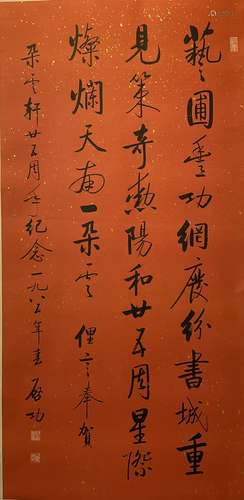 藝圃豐功網紛書城重
見策奇勳陽和廿五周星際
燦爛天南一朵雲 俚言奉賀
朵雲軒廿五周年紀念一九八五年春 啟功